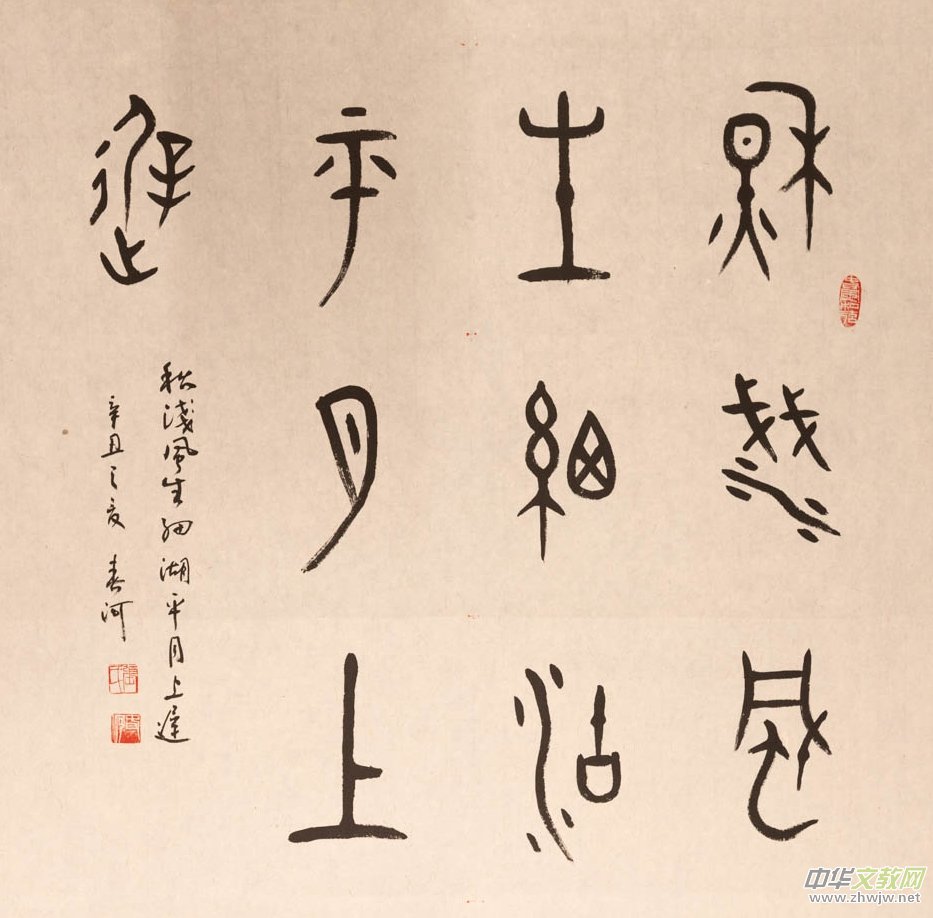 秋淺風
生細湖
平月上
遲
秋淺風生細湖平月上遲
辛丑之夏 春河
中华文教网
www.zhwjw.net